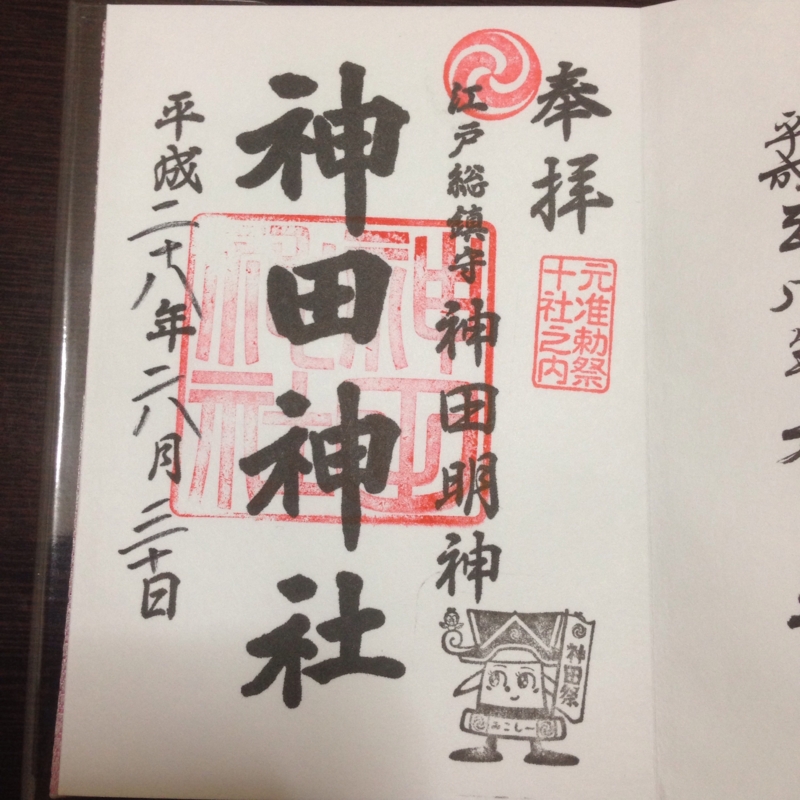 奉拝
元准勅祭
十社之内
江戸総鎮守 神田明神
神田神社
平成二十八年 月 日
神田祭
みこしー
平成